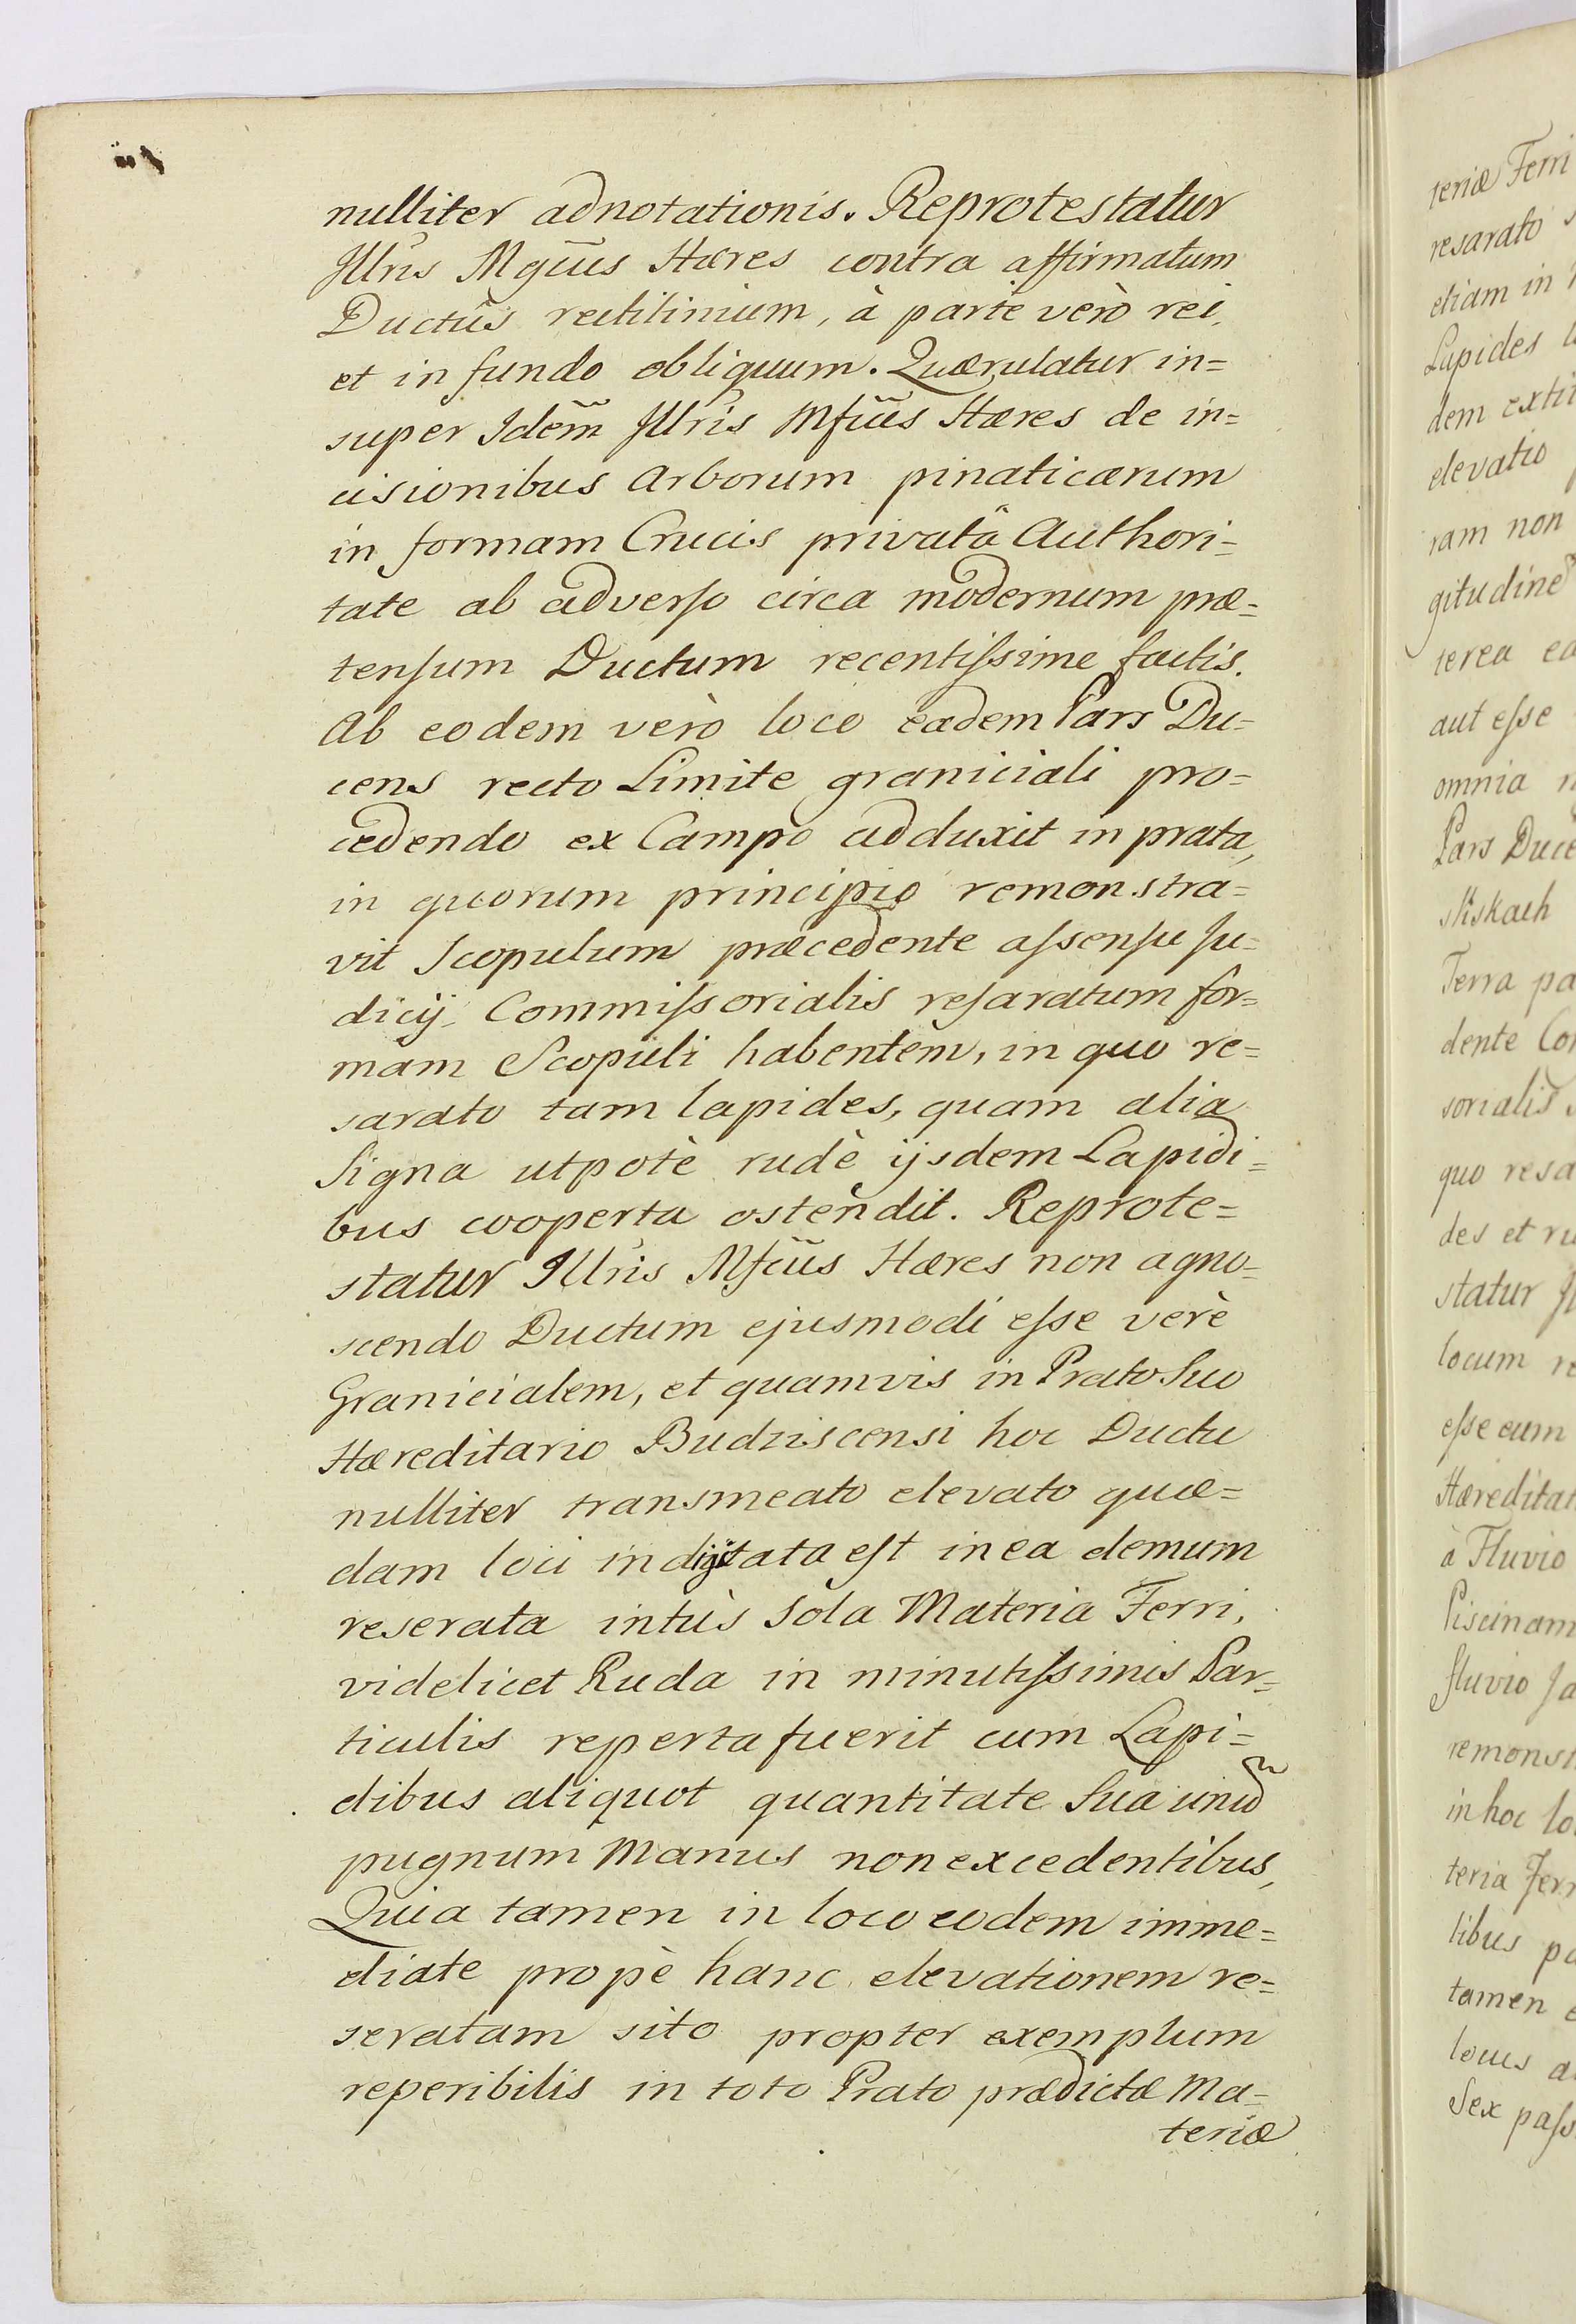 nulliter adnotationis. Reprotestatur
Jllris Mgcus Hæres contra affirmatum
Ductûs rectilinium, à parte verò rei,
et in fundo obliquum. Quærulatur in=
super Idem Jllris Mfcus Hæres de in=
cisionibus Arborum pinaticarum
in formam Crucis privatâ Authori=
tate ab adverso circa modernum præ=
tensum Ductum recentissime factis.
Ab eodem verò loco eadem Pars Du=
cens recto Limite graniciali pro=
cedendo ex Campo adduxit in prata,
in quorum principio remonstra=
vit Scopulum præcedente assensu Ju=
dicij Commissorialis resaratum for=
mam Scopuli habentem, in quo re=
sarato tam lapides, quam alia
Signa utpotè rudè ijsdem Lapidi=
bus cooperta ostendit. Reprote=
statur Jllris Mfcus Hæres non agno=
scendo Ductum ejusmodi esse verè
Granicialem, et quamvis in Prato Suo
Hæreditario Budziscensi hoc Ductu
nulliter transmeato elevato quæ=
dam loci indigitata est in ea demum
reserata intùs Sola Materia Ferri,
videlicet Ruda in minutissimis Par=
ticulis reperta fuerit cum Lapi=
dibus aliquot quantitate Sua unũ
pugnum Manus non excedentibus,
Quia tamen in loco eodem imme=
diate propè hanc elevationem re=
seratam sito propter exemplum
reperibilis in toto Prato prædictæ Ma=
teriæ
teriæ Ferri
resarato
etiam in
Lapides
dem
elevatio
ram non
gitudine
terea
aut esse
omnia
Pars Duce
Niskach
Terra
dente
sorialis
quo
des et
statur
locum
esse eum
Hæredita
à Fluvio
Piscinam
fluvio
remonst
in hoc
teria
libus
tamen
locus
Sex pass